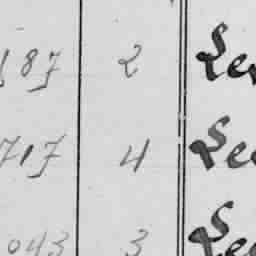 187 2 Le
717 4 Le
043 3 Le